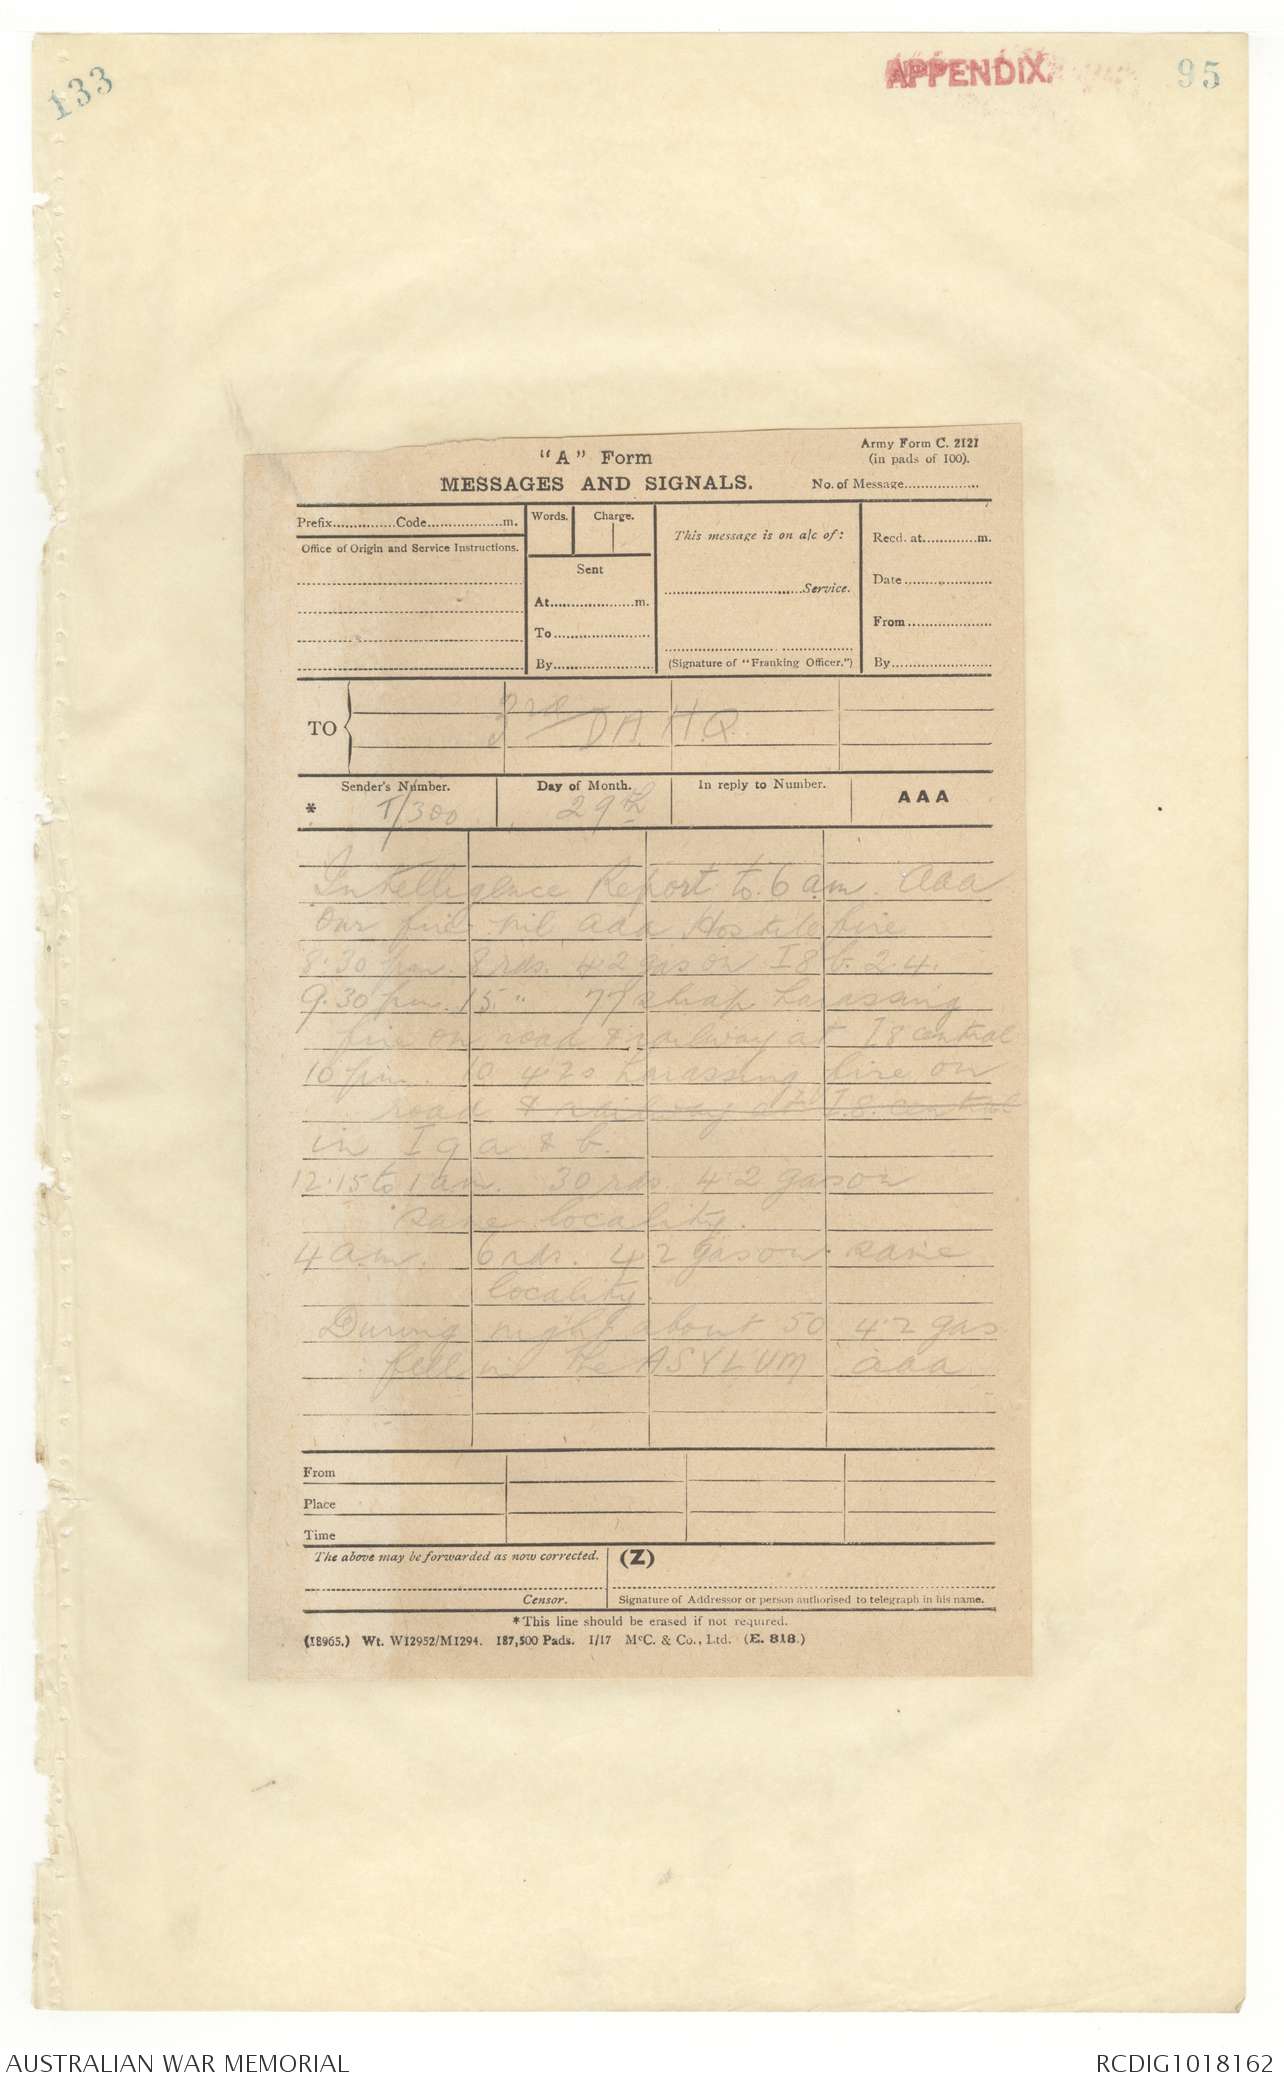 133
APPENDIX.
95
"A" Form
Army Form C. 2121
(in pads of 100).
MESSAGES AND SIGNALS.
No. of Message..................
Prefix...............Code..................m.
Office of Origin and Service Instructions.
Words.
Charge.
Sent
At.....................m.
To........................
By........................
This message is on a/c of:
................................Service.
(Signature of "Franking Officer.")
Recd. at............m.
Date......................
From....................
By........................
TO
3rd D.A. H.Q.
Sender's Number.
Day of Month.
In reply to Number.
AAA
*
I/300
29th
Intelligence Report to 6 am. aaa
Our fire nil aaa Hostile fire
8.30 pm. 8 rds. 4.2 gas on I8 b. 2.4.
9.30 pm. 15 " 77 shrap harassing
fire on road & railway at I8 central
10 pm. 10 4.2s harassing fire on
road & railway at I.8. central
in I 9 a & b.
12.15 to 1 am. 30 rds. 4.2 gas on
same locality.
4 am. 6 rds. 4.2 gas on same
locality.
During night about 50 4.2 gas
fell in the ASYLUM aaa
From
Place
Time
The above may be forwarded as now corrected.
(Z)
Censor.
Signature of Addressor or person authorised to telegraph in his name.
*This line should be erased if not required.
(18965.) Wt. W12952/M1294. 187,500 Pads. 1/17 McC. & Co., Ltd. (E. 818.)
AUSTRALIAN WAR MEMORIAL
RCDIG1018162